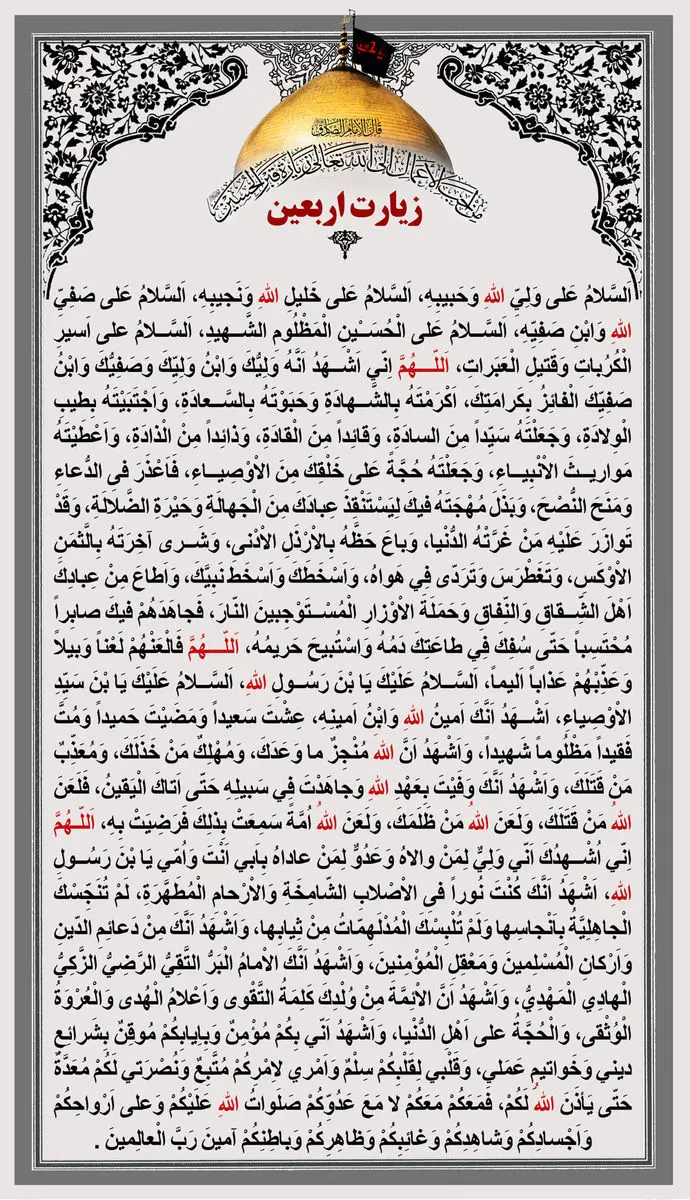 قالَ الإمامُ الصّادق
مِن أحَبِّ الأعمالِ إلَی اللهِ تَعالی زِیارَةُ قَبرِ الحُسَین
زیارت اربعین
اَلسَّلامُ عَلى وَلِيِّ اللهِ وَحَبيبِهِ، اَلسَّلامُ عَلى خَليلِ اللهِ وَنَجيبِهِ، اَلسَّلامُ عَلى صَفِيِّ
اللهِ وَابْنِ صَفيِّهِ، اَلسَّلامُ عَلى الْحُسَيْنِ الْمَظْلُومِ الشَّهيدِ، اَلسَّلامُ على اَسيرِ
الْكُرُباتِ وَقَتيلِ الْعَبَراتِ، اَللّهُمَّ اِنّي اَشْهَدُ اَنَّهُ وَلِيُّكَ وَابْنُ وَلِيِّكَ وَصَفِيُّكَ وَابْنُ
صَفِيِّكَ الْفائِزُ بِكَرامَتِكَ، اَكْرَمْتَهُ بِالشَّهادَةِ وَحَبَوْتَهُ بِالسَّعادَةِ، وَاَجْتَبَيْتَهُ بِطيبِ
الْوِلادَةِ، وَجَعَلْتَهُ سَيِّداً مِنَ السادَةِ، وَقائِداً مِنَ الْقادَةِ، وَذائِداً مِنْ الْذادَةِ، وَاَعْطَيْتَهُ
مَواريثَ الأنْبِياءِ، وَجَعَلْتَهُ حُجَّةً عَلى خَلْقِكَ مِنَ الأوْصِياءِ، فَاَعْذَرَ فى الدُّعاءِ
وَمَنَحَ النُّصْحَ، وَبَذَلَ مُهْجَتَهُ فيكَ لِيَسْتَنْقِذَ عِبادَكَ مِنَ الْجَهالَةِ وَحَيْرَةِ الضَّلالَةِ، وَقَدْ
تَوازَرَ عَلَيْهِ مَنْ غَرَّتْهُ الدُّنْيا، وَباعَ حَظَّهُ بِالأرْذَلِ الأدْنى، وَشَرى آخِرَتَهُ بِالَّثمَنِ
الأوْكَسِ، وَتَغَطْرَسَ وَتَرَدّى فِي هَواهُ، وَاَسْخَطَكَ وَاَسْخَطَ نَبِيَّكَ، وَاَطاعَ مِنْ عِبادِكَ
اَهْلَ الشِّقاقِ وَالنِّفاقِ وَحَمَلَةَ الأوْزارِ الْمُسْتَوْجِبينَ النّارَ، فَجاهَدَهُمْ فيكَ صابِراً
مُحْتَسِباً حَتّى سُفِكَ فِي طاعَتِكَ دَمُهُ وَاسْتُبيحَ حَريمُهُ، اَللّهُمَّ فَالْعَنْهُمْ لَعْناً وَبيلاً
وَعَذِّبْهُمْ عَذاباً اَليماً، اَلسَّلامُ عَلَيْكَ يَا بْنَ رَسُولِ اللهِ، اَلسَّلامُ عَلَيْكَ يَا بْنَ سَيِّدِ
الأوْصِياءِ، اَشْهَدُ اَنَّكَ اَمينُ اللهِ وَابْنُ اَمينِهِ، عِشْتَ سَعيداً وَمَضَيْتَ حَميداً وَمُتَّ
فَقيداً مَظْلُوماً شَهيداً، وَاَشْهَدُ اَنَّ اللهَ مُنْجِزٌ ما وَعَدَكَ، وَمُهْلِكٌ مَنْ خَذَلَكَ، وَمُعَذِّبٌ
مَنْ قَتَلَكَ، وَاَشْهَدُ اَنَّكَ وَفَيْتَ بِعَهْدِ اللهِ وَجاهَدْتَ فِي سَبيلِهِ حَتّى اَتاكَ الْيَقينُ، فَلَعَنَ
اللهُ مَنْ قَتَلَكَ، وَلَعَنَ اللهُ مَنْ ظَلَمَكَ، وَلَعَنَ اللهُ اُمَّةً سَمِعَتْ بِذلِكَ فَرَضِيَتْ بِهِ، اَللّهُمَّ
اِنّي اُشْهِدُكَ اَنّي وَلِيٌّ لِمَنْ والاهُ وَعَدُوٌّ لِمَنْ عاداهُ بِاَبي اَنْتَ وَاُمّي يَا بْنَ رَسُولِ
اللهِ، اَشْهَدُ اَنَّكَ كُنْتَ نُوراً فى الأصْلابِ الشّامِخَةِ وَالأرْحامِ الْمُطَهَّرَةِ، لَمْ تُنَجِّسْكَ
الْجاهِلِيَّةُ بِاَنْجاسِها وَلَمْ تُلْبِسْكَ الْمُدْلَهِمّاتُ مِنْ ثِيابِها، وَاَشْهَدُ اَنَّكَ مِنْ دَعائِمِ الدّينِ
وَاَرْكانِ الْمُسْلِمينَ وَمَعْقِلِ الْمُؤْمِنينَ، وَاَشْهَدُ اَنَّكَ الامامُ الْبَرُّ التَّقِيُّ الرَّضِيُّ الزَّكِيُّ
الْهادِي الْمَهْدِيُّ، وَاَشْهَدُ اَنَّ الأئِمَّةَ مِنْ وُلْدِكَ كَلِمَةُ التَّقْوى وَاَعْلامُ الْهُدى وَالْعُرْوَةُ
الْوُثْقى، وَالْحُجَّةُ على اَهْلِ الدُّنْيا، وَاَشْهَدُ اَنّي بِكُمْ مُؤْمِنٌ وَبِاِيابِكُمْ مُوقِنٌ بِشَرايِعِ
ديني وَخَواتيمِ عَمَلي، وَقَلْبي لِقَلْبِكُمْ سِلْمٌ وَاَمْري لاِمْرِكُمْ مُتَّبِعٌ وَنُصْرَتي لَكُمْ مُعَدَّةٌ
حَتّى يَأذَنَ اللهُ لَكُمْ، فَمَعَكُمْ مَعَكُمْ لا مَعَ عَدُوِّكُمْ صَلَواتُ اللهِ عَلَيْكُمْ وَعلى اَرْواحِكُمْ
وَاَجْسادِكُمْ وَشاهِدِكُمْ وَغائِبِكُمْ وَظاهِرِكُمْ وَباطِنِكُمْ آمينَ رَبَّ الْعالِمينَ .